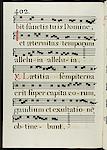 402.
bit sanctitas tuis Domine,
et æternitas temporum
alleluia alleluia.
Lætitia sempiterna
erit super capita eorum
gaudium et exultatio
obtinebunt.